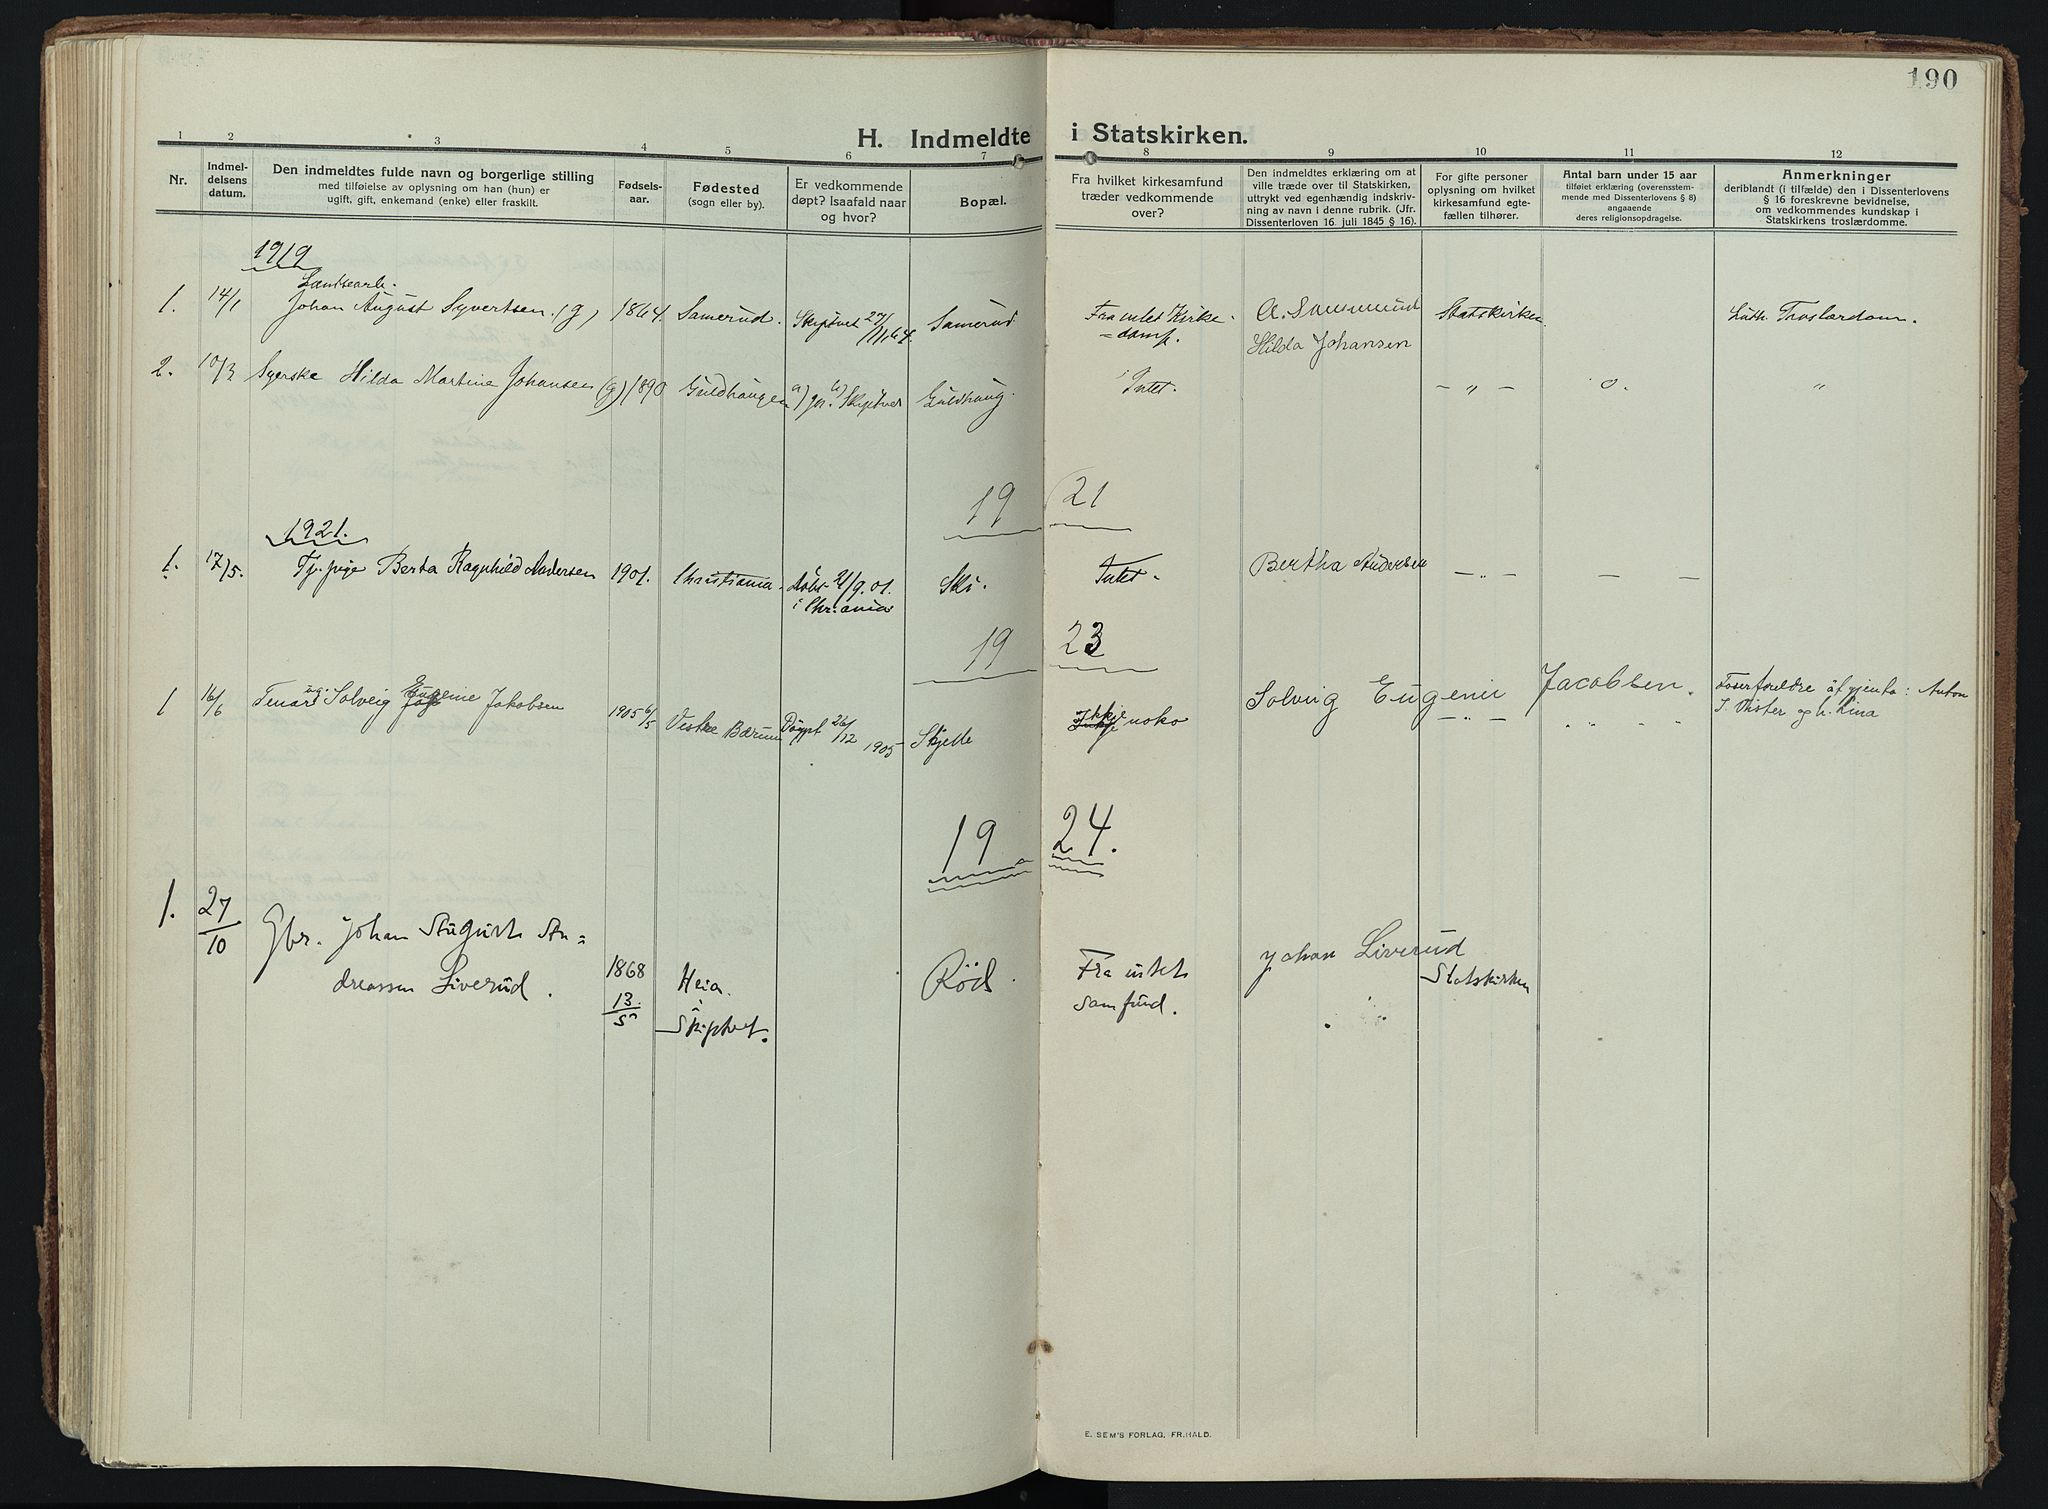 190
H. Indmeldte i Statskirken.
1 2 3 4 5 6 7 8 9 10 11 12
Nr.
Indmel-
delsens
datum.
Den indmeldtes fulde navn og borgerlige stilling
med tilføielse av oplysning om han (hun) er
ugift, gift, enkemand (enke) eller fraskilt.
Fødsels-
aar.
Fødested
(sogn eller by).
Er vedkommende
døpt? Isaafald naar
og hvor?
Bopæl.
Fra hvilket kirkesamfund
træder vedkommende
over?
Den indmeldtes erklæring om at
ville træde over til Statskirken,
uttrykt ved egenhændig indskriv-
ning av navn i denne rubrik. (Jfr.
Dissenterloven 16. juli 1845 § 16).
For gifte personer
oplysning om hvilket
kirkesamfund egte-
fællen tilhører.
Antal barn under 15 aar
tilføiet erklæring (overensstem-
mende med Dissenterlovens § 8)
angaaende
deres religionsopdragelse.
Anmerkninger
deriblandt (i tilfælde) den i Dissenterlovens
§ 16 foreskrevne bevidnelse,
om vedkommendes kundskap i
Statskirkens troslærdomme.
1919
1. 14/1 Johan August Syvertsen. (g) 1864. Samerud. Skiptvet 27/11 64. Samerud Fra intet Kirke-
=damf. Statskirken Luth. Troslærdom.
2. 10/3 Syerske Hilda Martine Johansen (g) 1890 Guldhaugen a) Ja. b) Skiptvet Guldhaug. Intet. Hilda Johansen — „ — 0. „
19 21
1921.
1. 17/5. Tj. pige Berta Ragnhild Andersen 1901. Christiania. Døbt 21/9. 01.
i Chr:ania Ski. Intet. Bertha Andersen — „ — — —
19 23
1 16/6 Solveig Eugenie Jakobsen 1905 6/5 Vestre Bærum Døypt 26/12 1905 Skjelle Ikkje noko Solveig Eugenie Jacobsen. — „ — „ „ „ Fosterforeldre åt gjenta: Anton
og h. Lina
19 24.
1. 27/10 Gbr. Johan August An=
dreassen Liverud. 1868
13/5 Heia
i
Skiptvet. Röd. Fra intet
Samfund. Johan Liverud Statskirken
E. SEM'S FORLAG, FR.HALD.